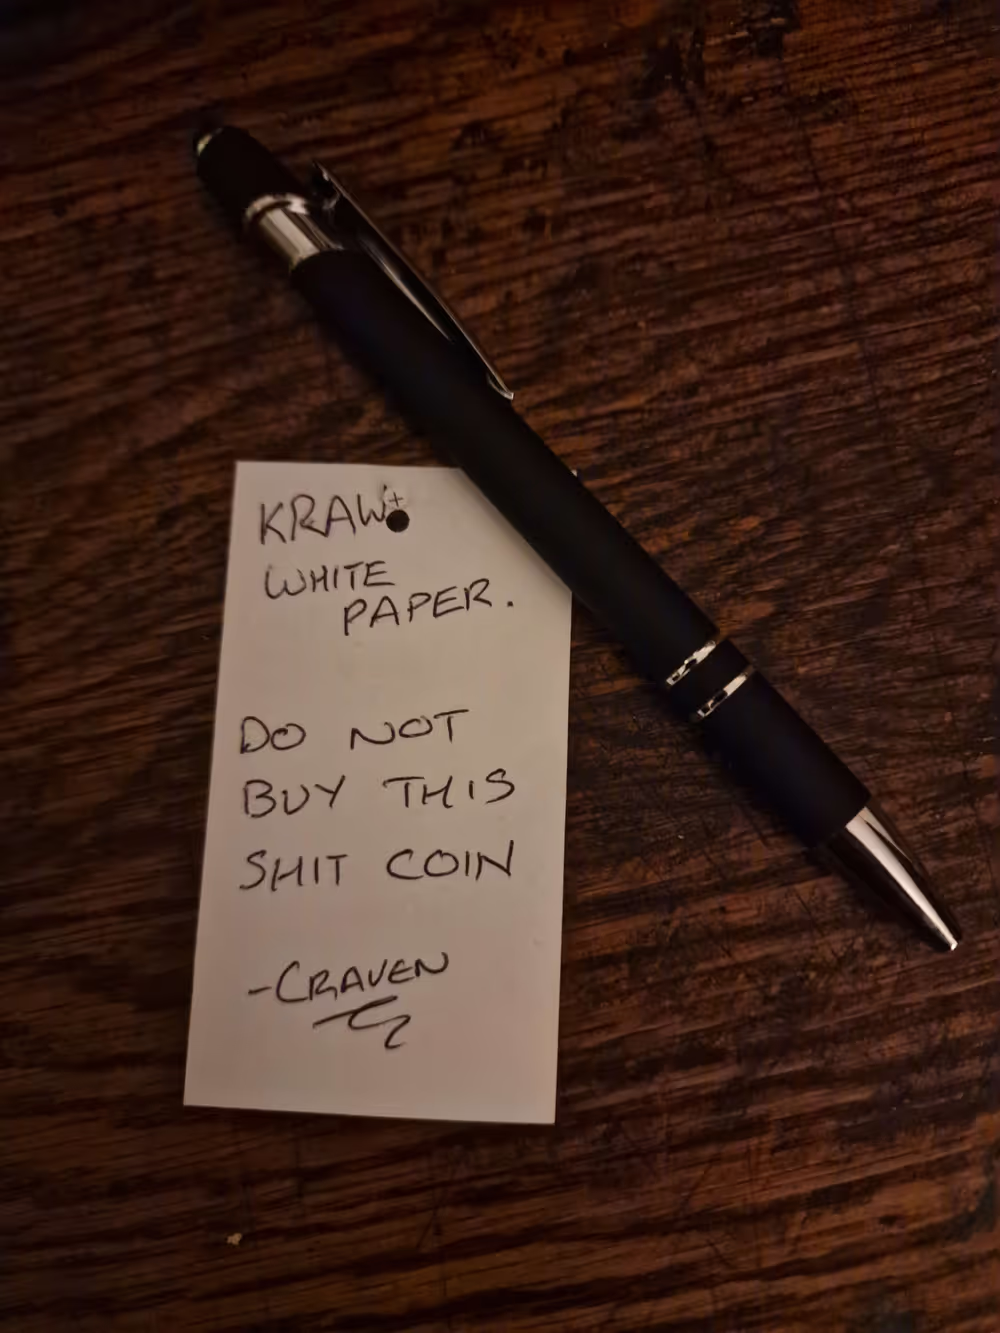 KRAW
WHITE
PAPER.
DO NOT
BUY THIS
SHIT COIN
-CRAVEN